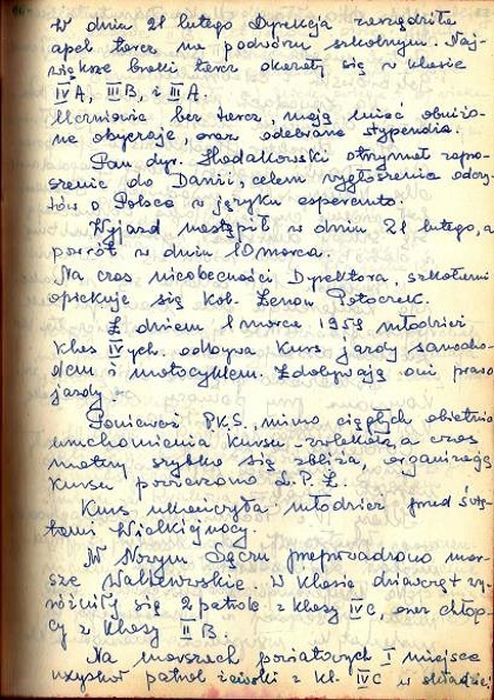 W dniu 21 lutego Dyrekcja zarządziła
apel tarcz na podwórzu szkolnym. Naj-
większe braki tarcz okazały się w klasie
IV A, III B, i III A.
Uczniowie bez tarcz, mają mieć obniżo-
ne obyczaje, oraz odebrane stypendia.
Pan dyr. Chodakowski otrzymał zapro-
szenie do Danii, celem wygłoszenia odczy-
tów o Polsce w języku esperanto.
Wyjazd nastąpił w dniu 21 lutego, a
powrót w dniu 10 marca.
Na czas nieobecności Dyrektora, szkołami
opiekuje się Kol. Zenon Potoczek.
Z dniem 1 marca 1959 młodzież
klas IVych. odbywa kurs jazdy samocho-
dem i motocyklem. Zdobywają oni prawo
jazdy.
Ponieważ P.K.S., mimo ciągłych obietnic
uruchomienia kursu - zwlekała, a czas
matury szybko się zbliża, organizację
kursu powierzono L.P.Ż.
Kurs ukończyła młodzież przed świę-
tami Wielkiejnocy.
W Nowym Sączu przeprowadzono mar-
sze Walterowskie. W klasie dziewcząt wy-
różniły się 2 patrole z klasy IV C, oraz chłop-
cy z klasy II B.
Na marszach powiatowych I miejsce
uzyskał patrol żeński z kl. IV C w składzie: